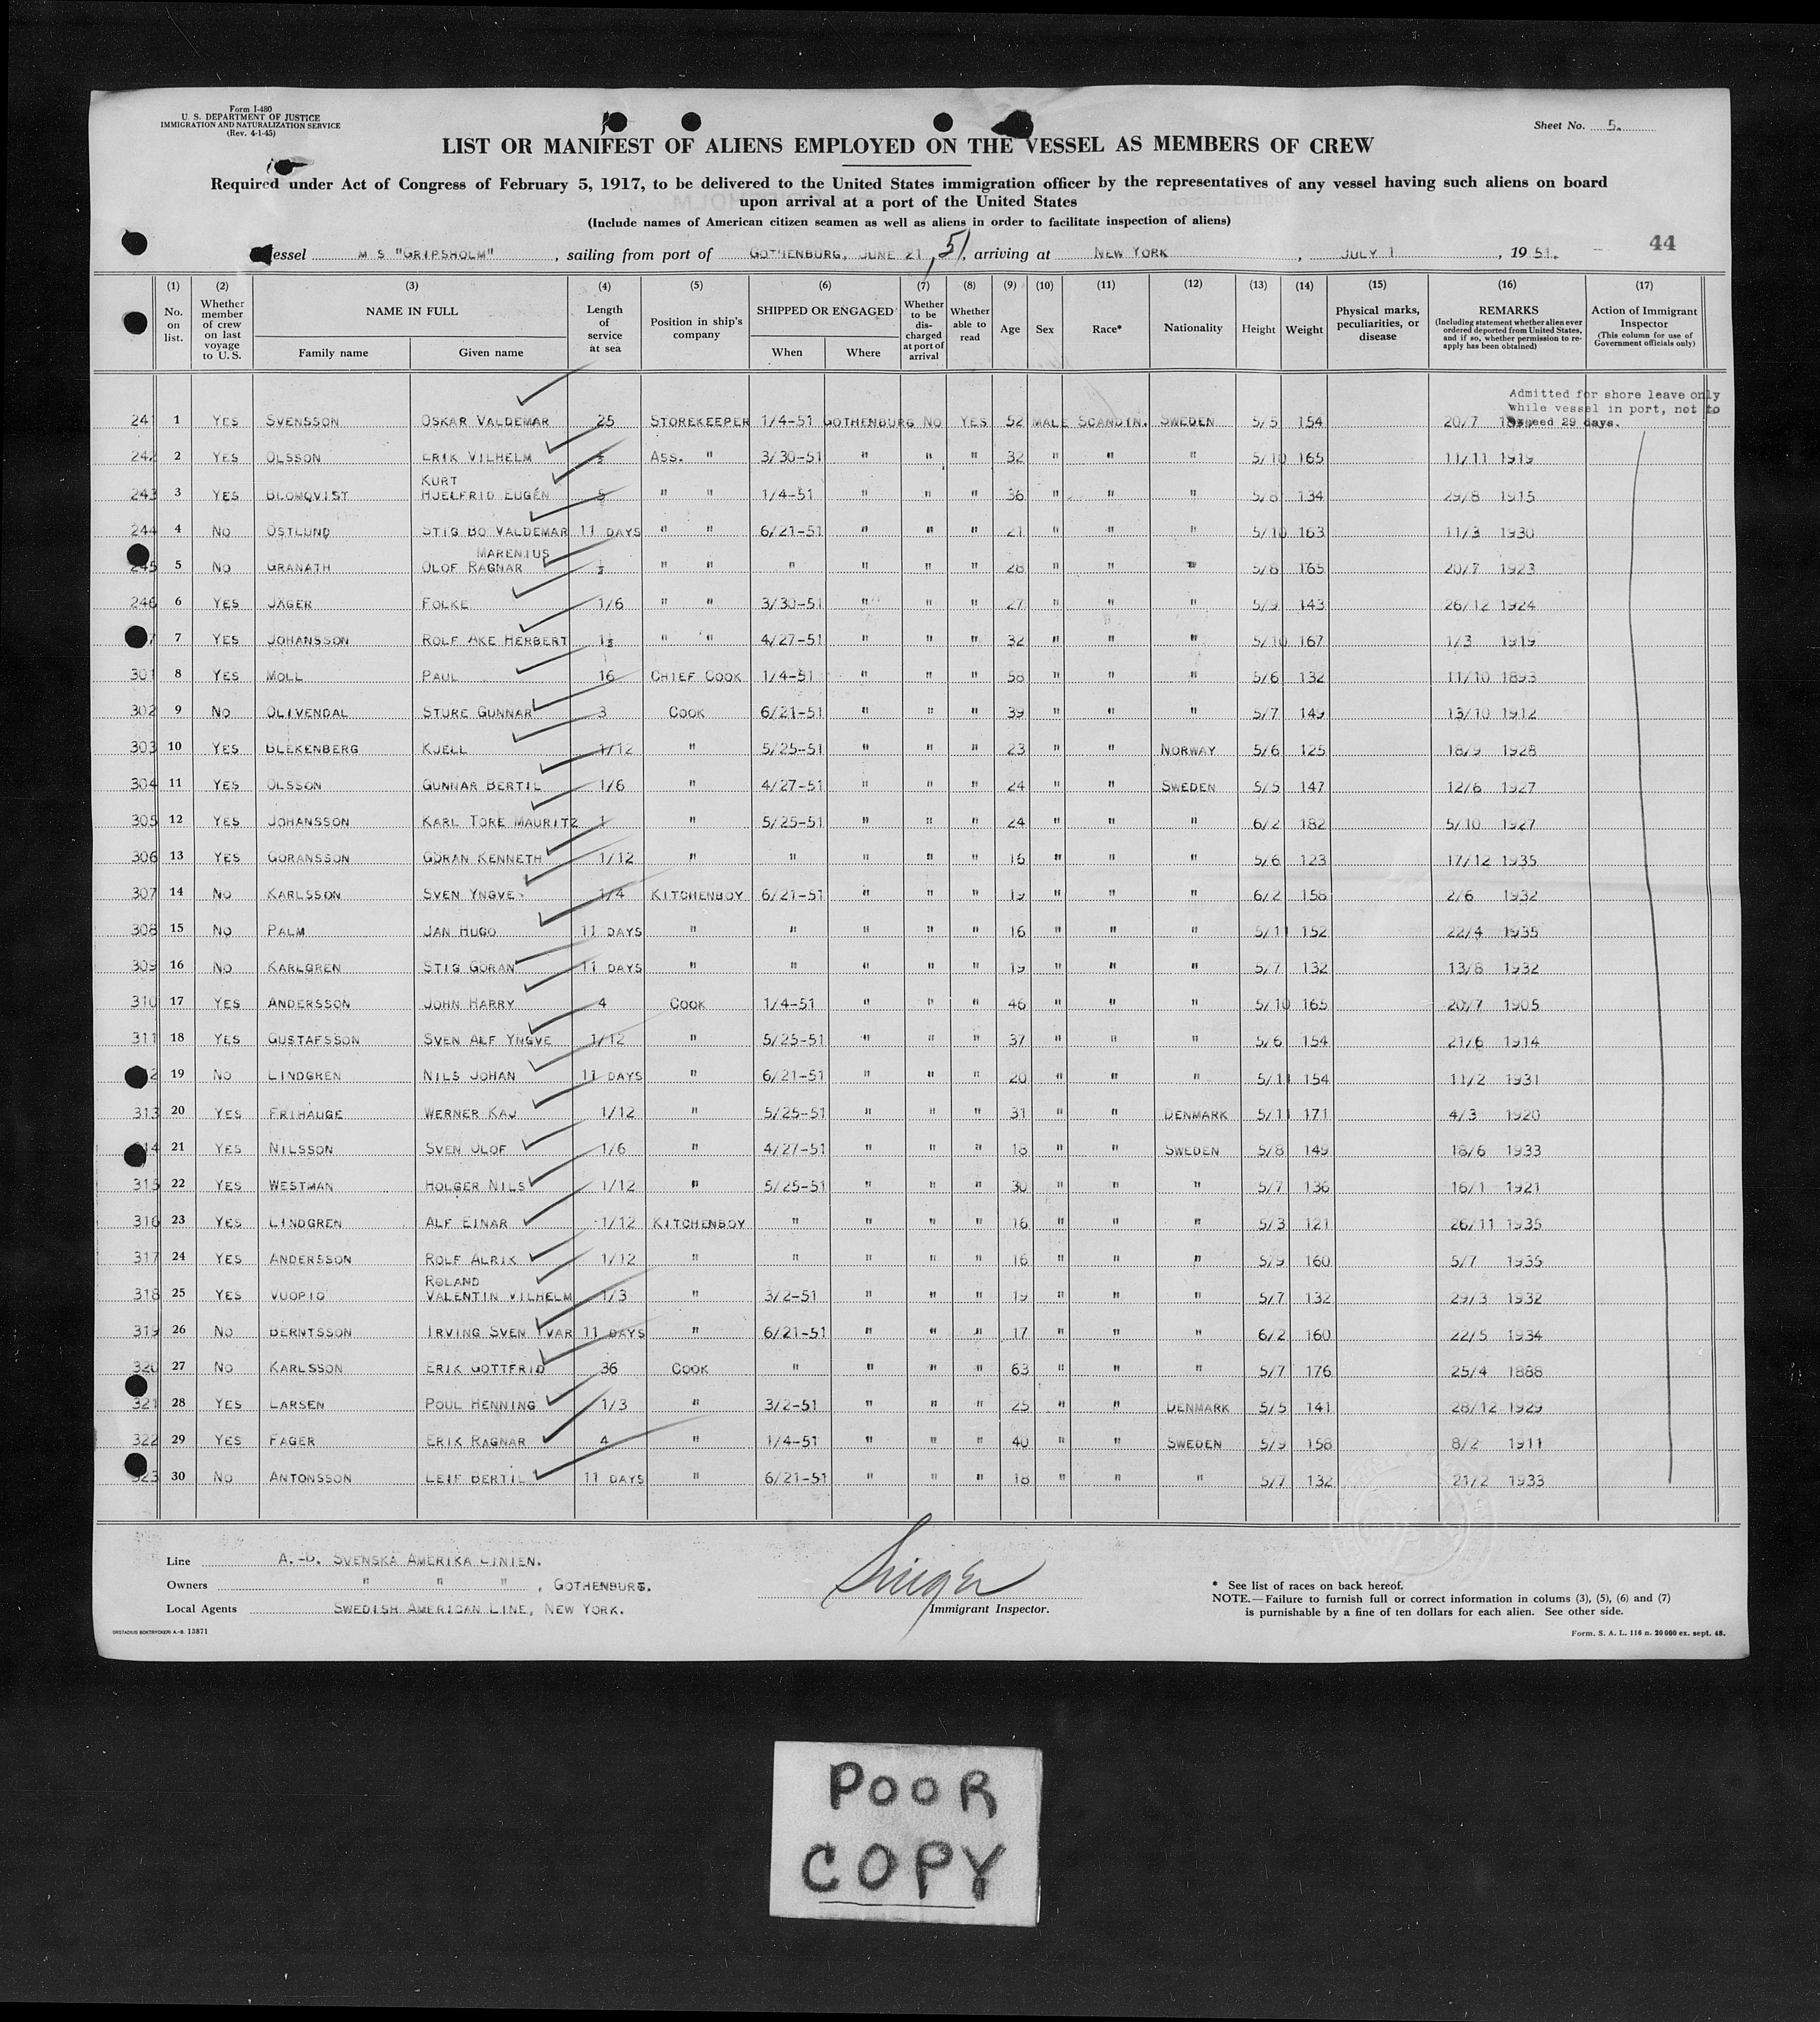 Form I-480
U. S. DEPARTMENT OF JUSTICE
IMMIGRATION AND NATURALIZATION SERVICE
(Rev. 4-1-45)
Sheet No. 5.
LIST OR MANIFEST OF ALIENS EMPLOYED ON THE VESSEL AS MEMBERS OF CREW
Required under Act of Congress of February 5, 1917, to be delivered to the United States immigration officer by the representatives of any vessel having such aliens on board
upon arrival at a port of the United States
(Include names of American citizen seamen as well as aliens in order to facilitate inspection of aliens)
essel M S "GRIPSHOLM", sailing from port of GOTHENBURG, JUNE 21, 51, arriving at NEW YORK, JULY 1, 1951.
44
(1) No. on list.
(2) Whether member of crew on last voyage to U. S.
(3) NAME IN FULL Family name Given name
(4) Length of service at sea
(5) Position in ship's company
(6) SHIPPED OR ENGAGED When Where
(7) Whether to be dis-charged at port of arrival
(8) Whether able to read
(9) Age
(10) Sex
(11) Race*
(12) Nationality
(13) Height
(14) Weight
(15) Physical marks, peculiarities, or disease
(16) REMARKS (Including statement whether alien ever ordered deported from United States, and if so, whether permission to re-apply has been obtained)
(17) Action of Immigrant Inspector (This column for use of Government officials only)
Admitted for shore leave only
while vessel in port, not to
exceed 29 days.
241 1 YES SVENSSON OSKAR VALDEMAR 25 STOREKEEPER 1/4-51 GOTHENBURG NO YES 52 MALE SCANDIN. SWEDEN 5/5 154 20/7
242 2 YES OLSSON ERIK VILHELM ½ ASS. " 3/30-51 " " " 32 " " " 5/10 165 11/11 1919
KURT
243 3 YES BLOMQVIST HJELFRID EUGÉN 5 " " 1/4-51 " " " 36 " " " 5/8 134 29/8 1915
244 4 NO ÖSTLUND STIG BO VALDEMAR 11 DAYS " " 6/21-51 " " " 21 " " " 5/10 163 11/3 1930
MARENIUS
245 5 NO GRANATH OLOF RAGNAR ½ " " " " " " 28 " " " 5/8 165 20/7 1923
246 6 YES JÄGER FOLKE 1/6 " " 3/30-51 " " " 27 " " " 5/9 143 26/12 1924
7 7 YES JOHANSSON ROLF ÅKE HERBERT 1½ " " 4/27-51 " " " 32 " " " 5/10 167 1/3 1919
301 8 YES MOLL PAUL 16 CHIEF COOK 1/4-51 " " " 58 " " " 5/6 132 11/10 1893
302 9 NO OLIVENDAL STURE GUNNAR 3 COOK 6/21-51 " " " 39 " " " 5/7 149 13/10 1912
303 10 YES BLEKENBERG KJELL 1/12 " 5/25-51 " " " 23 " " NORWAY 5/6 125 18/9 1928
304 11 YES OLSSON GUNNAR BERTIL 1/6 " 4/27-51 " " " 24 " " SWEDEN 5/5 147 12/6 1927
305 12 YES JOHANSSON KARL TORE MAURITZ 1 " 5/25-51 " " " 24 " " " 6/2 182 5/10 1927
306 13 YES GÖRANSSON GÖRAN KENNETH 1/12 " " " " " 16 " " " 5/6 123 17/12 1935
307 14 NO KARLSSON SVEN YNGVE 1/4 KITCHENBOY 6/21-51 " " " 19 " " " 6/2 158 2/6 1932
308 15 NO PALM JAN HUGO 11 DAYS " " " " " 16 " " " 5/11 152 22/4 1935
309 16 NO KARLGREN STIG GÖRAN 11 DAYS " " " " " 19 " " " 5/7 132 13/8 1932
310 17 YES ANDERSSON JOHN HARRY 4 COOK 1/4-51 " " " 46 " " " 5/10 165 20/7 1905
311 18 YES GUSTAFSSON SVEN ALF YNGVE 1/12 " 5/25-51 " " " 37 " " " 5/6 154 21/6 1914
2 19 NO LINDGREN NILS JOHAN 11 DAYS " 6/21-51 " " " 20 " " " 5/11 154 11/2 1931
313 20 YES FRIHAUGE WERNER KAJ 1/12 " 5/25-51 " " " 31 " " DENMARK 5/11 171 4/3 1920
314 21 YES NILSSON SVEN OLOF 1/6 " 4/27-51 " " " 18 " " SWEDEN 5/8 149 18/6 1933
315 22 YES WESTMAN HOLGER NILS 1/12 " 5/25-51 " " " 30 " " " 5/7 136 16/1 1921
316 23 YES LINDGREN ALF EINAR 1/12 KITCHENBOY " " " " 16 " " " 5/3 121 26/11 1935
317 24 YES ANDERSSON ROLF ALRIK 1/12 " " " " " 16 " " " 5/9 160 5/7 1935
ROLAND
318 25 YES VUOPIO VALENTIN VILHELM 1/3 " 3/2-51 " " " 19 " " " 5/7 132 29/3 1932
319 26 NO BERNTSSON IRVING SVEN IVAR 11 DAYS " 6/21-51 " " " 17 " " " 6/2 160 22/5 1934
320 27 NO KARLSSON ERIK GOTTFRID 36 COOK " " " " 63 " " " 5/7 176 25/4 1888
321 28 YES LARSEN POUL HENNING 1/3 " 3/2-51 " " " 25 " " DENMARK 5/5 141 28/12 1929
322 29 YES FAGER ERIK RAGNAR 4 " 1/4-51 " " " 40 " " SWEDEN 5/9 158 8/2 1911
323 30 NO ANTONSSON LEIF BERTIL 11 DAYS " 6/21-51 " " " 18 " " " 5/7 132 21/2 1933
Line A.-B. SVENSKA AMERIKA LINIEN.
Owners " " ", GOTHENBURG.
Local Agents SWEDISH AMERICAN LINE, NEW YORK.
Singer
Immigrant Inspector.
* See list of races on back hereof.
NOTE.—Failure to furnish full or correct information in colums (3), (5), (6) and (7)
is punishable by a fine of ten dollars for each alien. See other side.
ORSTADIUS BOKTRYCKERI A.-B. 13871
Form. S. A. L. 116 n. 20000 ex. sept. 48.
POOR
COPY